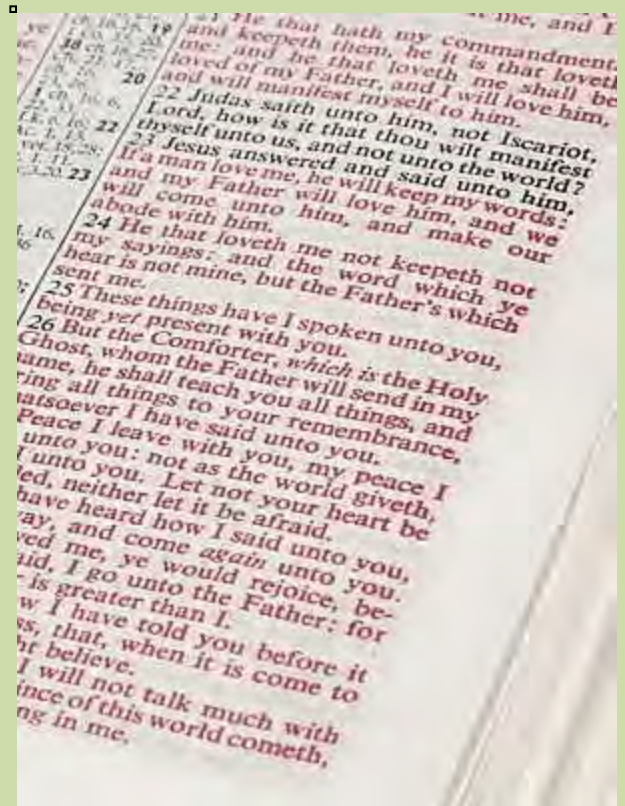 19
38
20
22
23
t me, and I
21 He that hath my commandment
and keepeth them, he it is that loveth
me: and he that loveth me shall be
loved of my Father, and I will love him,
and will manifest myself to him.
22 Judas saith unto him, not Iscariot,
Lord, how is it that thou wilt manifest
thyself unto us, and not unto the world?
23 Jesus answered and said unto him,
If a man love me, he will keep my words:
and my Father will love him, and we
will come unto him, and make our
abode with him.
24 He that loveth me not keepeth not
my sayings: and the word which ye
hear is not mine, but the Father's which
sent me.
25 These things have I spoken unto you,
being yet present with you.
26 But the Comforter, which is the Holy
Ghost, whom the Father will send in my
ame, he shall teach you all things, and
ring all things to your remembrance,
atsoever I have said unto you.
Peace I leave with you, my peace I
unto you: not as the world giveth,
I unto you. Let not your heart be
led, neither let it be afraid.
have heard how I said unto you,
ay, and come again unto you.
ved me, ye would rejoice, be-
aid, I go unto the Father: for
r is greater than I.
w I have told you before it
ss, that, when it is come to
ht believe.
I will not talk much with
ince of this world cometh,
ng in me.